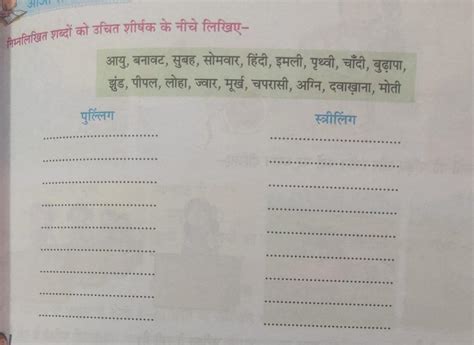 निम्नलिखित शब्दों को उचित शीर्षक के नीचे लिखिए–
आयु, बनावट, सुबह, सोमवार, हिंदी, इमली, पृथ्वी, चाँदी, बुढ़ापा,
झुंड, पीपल, लोहा, ज्वार, मूर्ख, चपरासी, अग्नि, दवाख़ाना, मोती
पुल्लिंग
स्त्रीलिंग